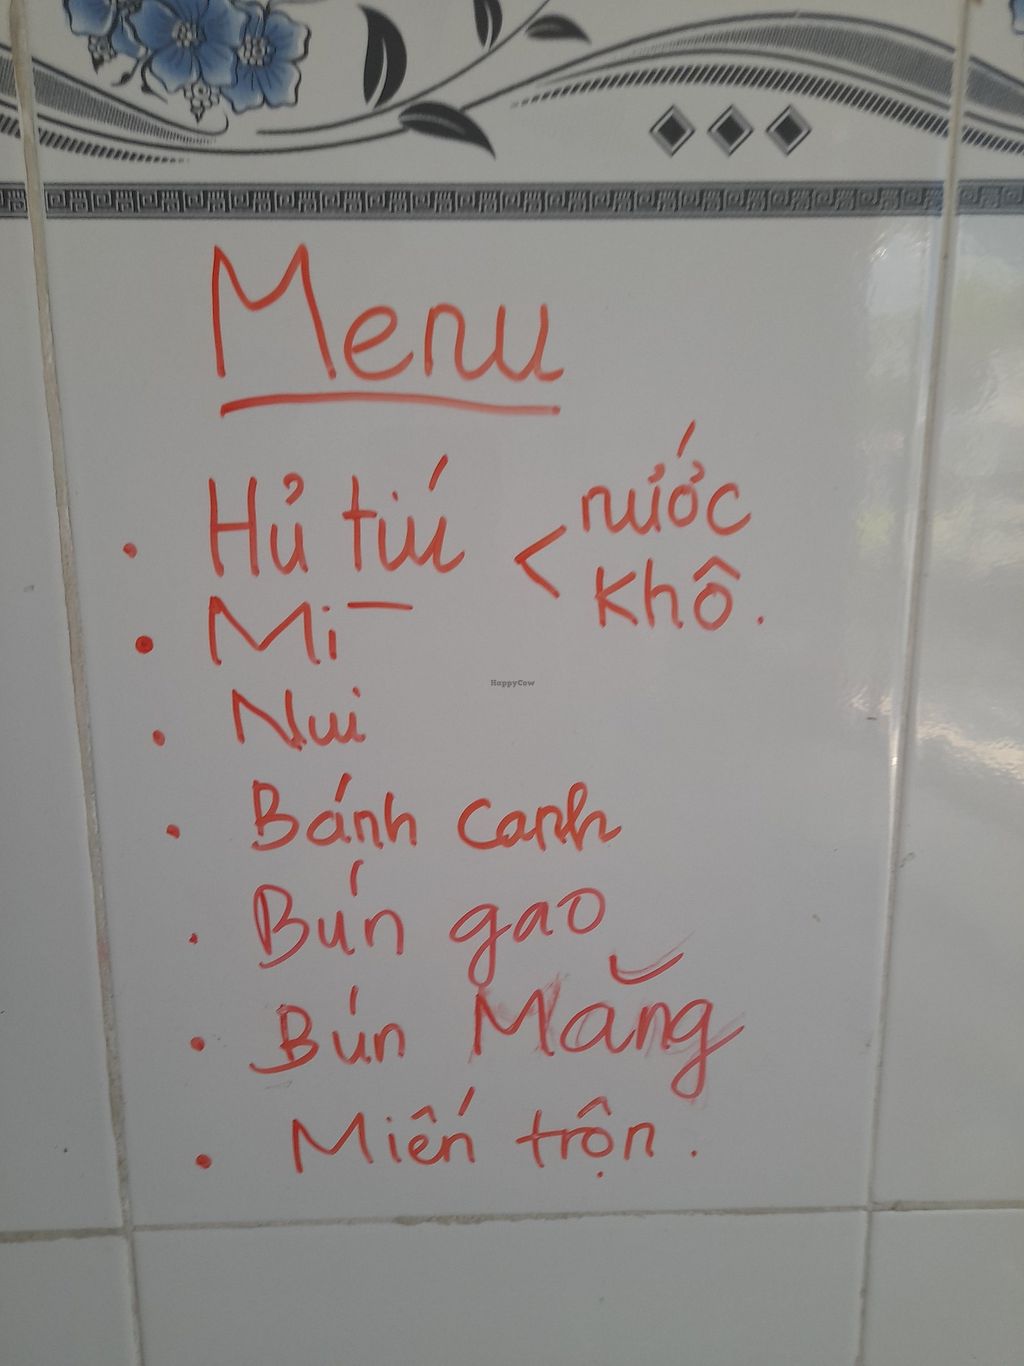 Menu
• Hủ tiú < nước
khô.
• Mì
• Nui
• Bánh canh
• Bún gạo
• Bún Măng
• Miến trộn.
HappyCow